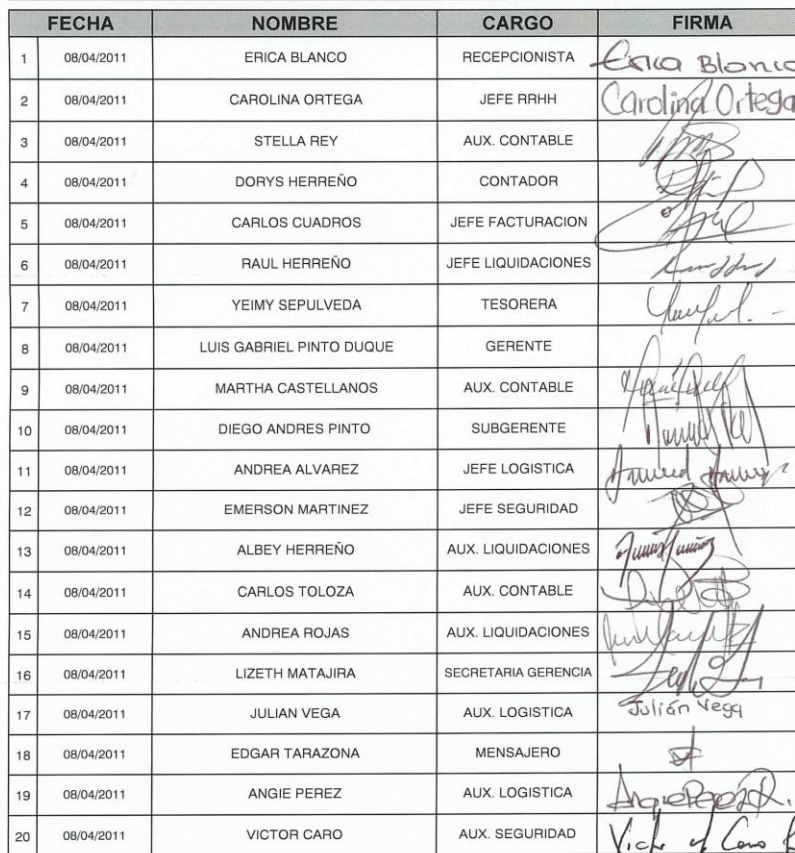 FECHA NOMBRE CARGO FIRMA
1 08/04/2011 ERICA BLANCO RECEPCIONISTA Erica Blanco
2 08/04/2011 CAROLINA ORTEGA JEFE RRHH Carolina Ortega
3 08/04/2011 STELLA REY AUX. CONTABLE
4 08/04/2011 DORYS HERREÑO CONTADOR
5 08/04/2011 CARLOS CUADROS JEFE FACTURACION
6 08/04/2011 RAUL HERREÑO JEFE LIQUIDACIONES
7 08/04/2011 YEIMY SEPULVEDA TESORERA
8 08/04/2011 LUIS GABRIEL PINTO DUQUE GERENTE
9 08/04/2011 MARTHA CASTELLANOS AUX. CONTABLE
10 08/04/2011 DIEGO ANDRES PINTO SUBGERENTE
11 08/04/2011 ANDREA ALVAREZ JEFE LOGISTICA
12 08/04/2011 EMERSON MARTINEZ JEFE SEGURIDAD
13 08/04/2011 ALBEY HERREÑO AUX. LIQUIDACIONES
14 08/04/2011 CARLOS TOLOZA AUX. CONTABLE
15 08/04/2011 ANDREA ROJAS AUX. LIQUIDACIONES
16 08/04/2011 LIZETH MATAJIRA SECRETARIA GERENCIA
17 08/04/2011 JULIAN VEGA AUX. LOGISTICA Julián Vega
18 08/04/2011 EDGAR TARAZONA MENSAJERO
19 08/04/2011 ANGIE PEREZ AUX. LOGISTICA Angie Perez R.
20 08/04/2011 VICTOR CARO AUX. SEGURIDAD Caro